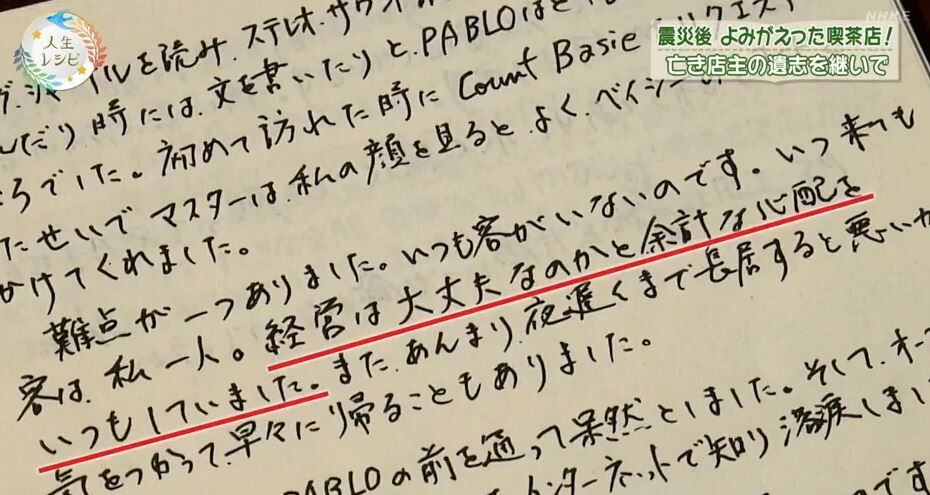 人生
レシピ
NHK E
震災後 よみがえった喫茶店!
亡き店主の遺志を継いで
ルを読み、ステレオ、サウン
だり時には、文を書いたりと、PABLOは
ろでした。初めて訪れた時に Count Basie
たせいでマスターは、私の顔を見ると、よく、ベイシー
かけてくれました。
難点が一つありました。いつも客がいないのです。いつ来ても
客は、私一人。経営は大丈夫なのかと余計な心配を
いつもしていました。また、あんまり、夜遅くまで長居すると悪いか
気をつかって、早々に帰ることもありました。
PABLOの前を通って呆然としました。そして、オー
ンターネットで知り 落涙しまし
のです